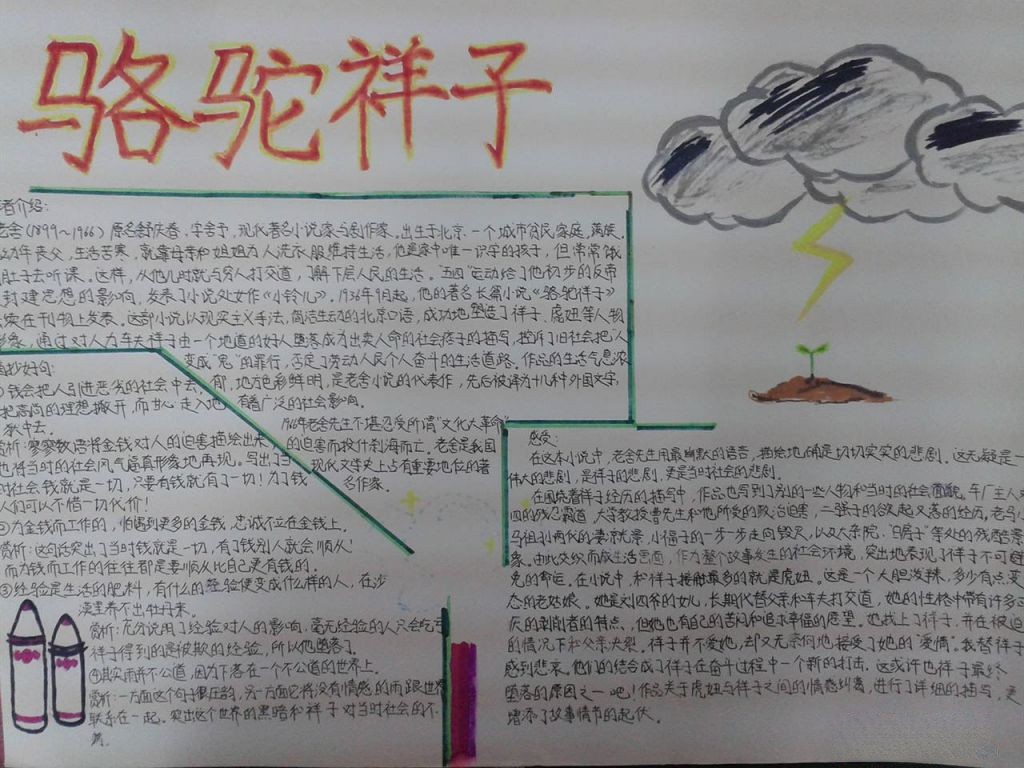 骆驼祥子
者介绍:
老舍(1899~1966)原名舒庆春,字舍予,现代著名小说家与剧作家。出生于北京一个城市贫民家庭,满族。
幼年丧父,生活苦寒,就靠母亲和姐姐为人洗衣服维持生活,他是家中唯一识字的孩子,但常常饿
肚子去听课。这样,从他儿时就与穷人打交道,了解下层人民的生活。“五四”运动给了他初步的反帝
封建思想的影响,发表了小说处女作《小铃儿》。1936年9月起,他的著名长篇小说《骆驼祥子》
续在刊物上发表。这部小说以现实主义手法,简洁生动的北京口语,成功地塑造了祥子,虎妞等人物
形象,通过对人力车夫祥子由一个地道的好人堕落成为出卖人命的社会痞子的描写,控诉了旧社会把“人”
变成“鬼”的罪行,否定了劳动人民个人奋斗的生活道路。作品的生活气息浓
郁,地方色彩鲜明,是老舍小说的代表作,先后被译为十几种外国文字,
有着广泛的社会影响。
1966年老舍先生不堪忍受所谓“文化大革命”
的迫害而投什刹海而亡。老舍是我国
现代文学史上占有重要地位的著
名作家。
摘抄好句:
①钱会把人引进恶劣的社会中去,
把高尚的理想撇开,而甘心走入地
狱中去。
赏析:寥寥数语将金钱对人的迫害描绘出来,
也将当时的社会风气逼真形象地再现。写出了当
时社会钱就是一切,只要有钱就有了一切!为了钱
人们可以不惜一切代价!
②为金钱而工作的,怕遇到更多的金钱,忠诚不立在金钱上。
赏析:这句话突出了当时钱就是一切,有了钱别人就会顺从!
而为钱而工作的往往都是要顺从比自己更有钱的。
③经验是生活的肥料,有什么的经验便变成什么样的人,在沙
漠里养不出牡丹来。
赏析:充分说明了经验对人的影响,毫无经验的人只会吃亏
祥子得到的是被欺的经验,所以他堕落了。
④其实雨并不公道,因为下落在一个不公道的世界上。
赏析:一方面这个句子很压韵,另一方面它将没有情感的雨跟世界
联系在一起。突出这个世界的黑暗和祥子对当时社会的不
满。
感受:
在这本小说中,老舍先生用最幽默的语言,描绘地确是切切实实的悲剧。这无疑是一
伟大的悲剧,是祥子的悲剧,更是当时社会的悲剧。
在围绕着祥子经历的描写中,作品也写到了别的一些人物和当时的社会面貌。车厂主人
四的残忍霸道,大学教授曹先生和他所受的政治迫害,二强子的欲起又落的经历,老马小
马祖孙两代的凄凉就景,小福子的一步一步走向毁灭,以及大杂院,“白房子”等处的残酷景
象。由此交织而成生活画面,作为整个故事发生的社会环境,突出地表现了祥子不可避
免的命运。在小说中,和祥子接触最多的就是虎妞。这是一个大胆泼辣,多少有点变
态的老姑娘。她是刘四爷的女儿,长期代替父亲和车夫打交道,她的性格中带有许多
厌的剥削者的特点、但她也有自己的苦闷和追求幸福的愿望。她找上了祥子,并在被迫
的情况下和父亲决裂。祥子并不爱她,却又无奈何地接受了她的“爱情”。我替祥子
感到悲哀。他们的结合成了祥子在奋斗过程中一个新的打击,这或许也祥子最终
堕落的原因之一吧!作品关于虎妞与祥子之间的情感纠葛,进行了详细的描写,更
增添了故事情节的起伏。